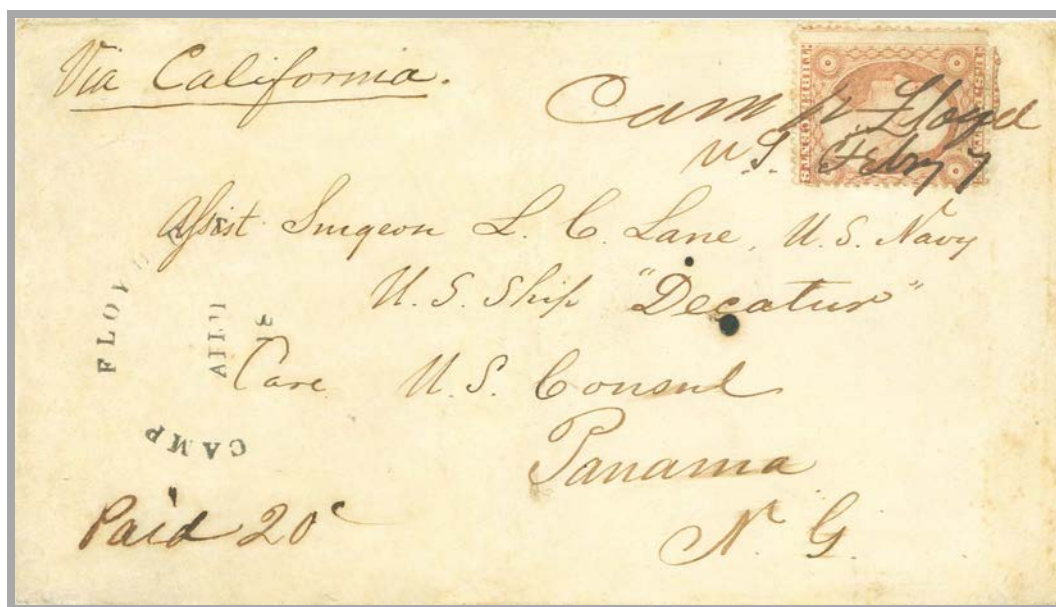 Via California.
Camp Floyd
U.S. Febry 7
Assist Surgeon L. C. Lane, U.S. Navy
U.S. Ship "Decatur"
Care U.S. Consul
Panama
N. G.
Paid 20c
CAMP FLOYD
THREE CENTS